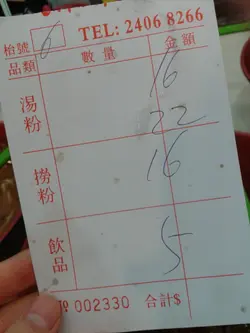 TEL: 2406 8266
枱號 6
品類 數量 金額
16
湯粉 22
撈粉 16
飲品 5
№ 002330 合計$